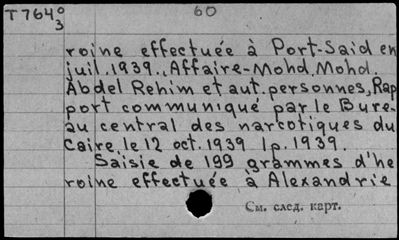 T 764⁰
3
60
roine effectuée à Port-Said en
juil. 1939., Affaire-Mohd. Mohd.
Abdel Rehim et aut. personnes, Rap
port communiqué par le Bure-
au central des narcotiques du
Caire, le 12 oct. 1939 1 p. 1939.
Saisie de 199 grammes d'he
roine effectuée à Alexandrie
См. след. карт.